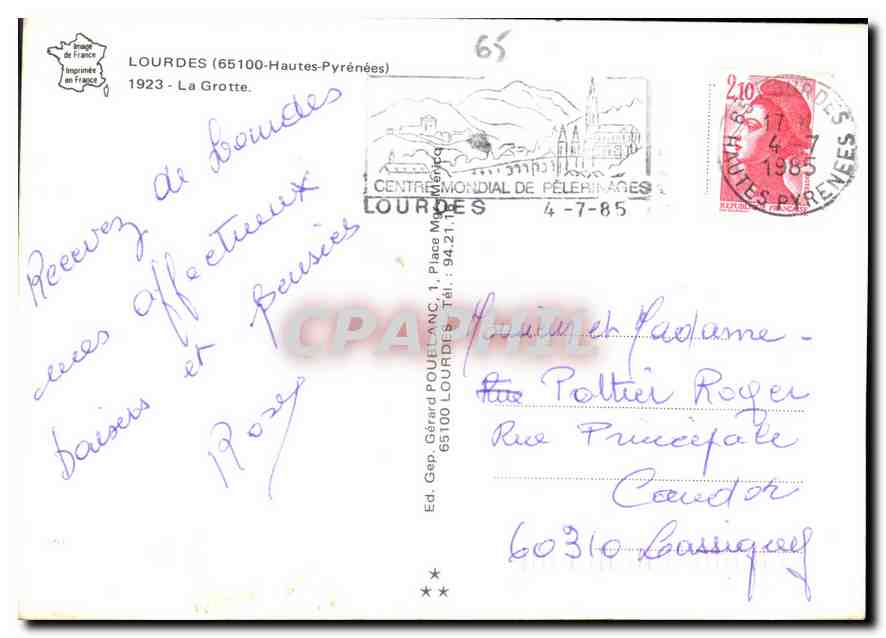 Image
de France
Imprimée
en France
LOURDES (65100-Hautes-Pyrénées)
1923 - La Grotte.
65
CENTRE MONDIAL DE PÈLERINAGES
LOURDES 4-7-85
2,10
LOURDES
17 H
4-7
1985
HAUTES PYRENEES
Recevez de Lourdes
mes affectueux
baisers et pensées
Rosy
Ed. Gep. Gérard POUBLANC, 1, Place Mgr Méricq
65100 LOURDES - Tél. : 94.21.1
CPAPHIL
Monsieur et Madame -
Rue Poltier Roger
Rue Principale
Candor
60310 Lassigny